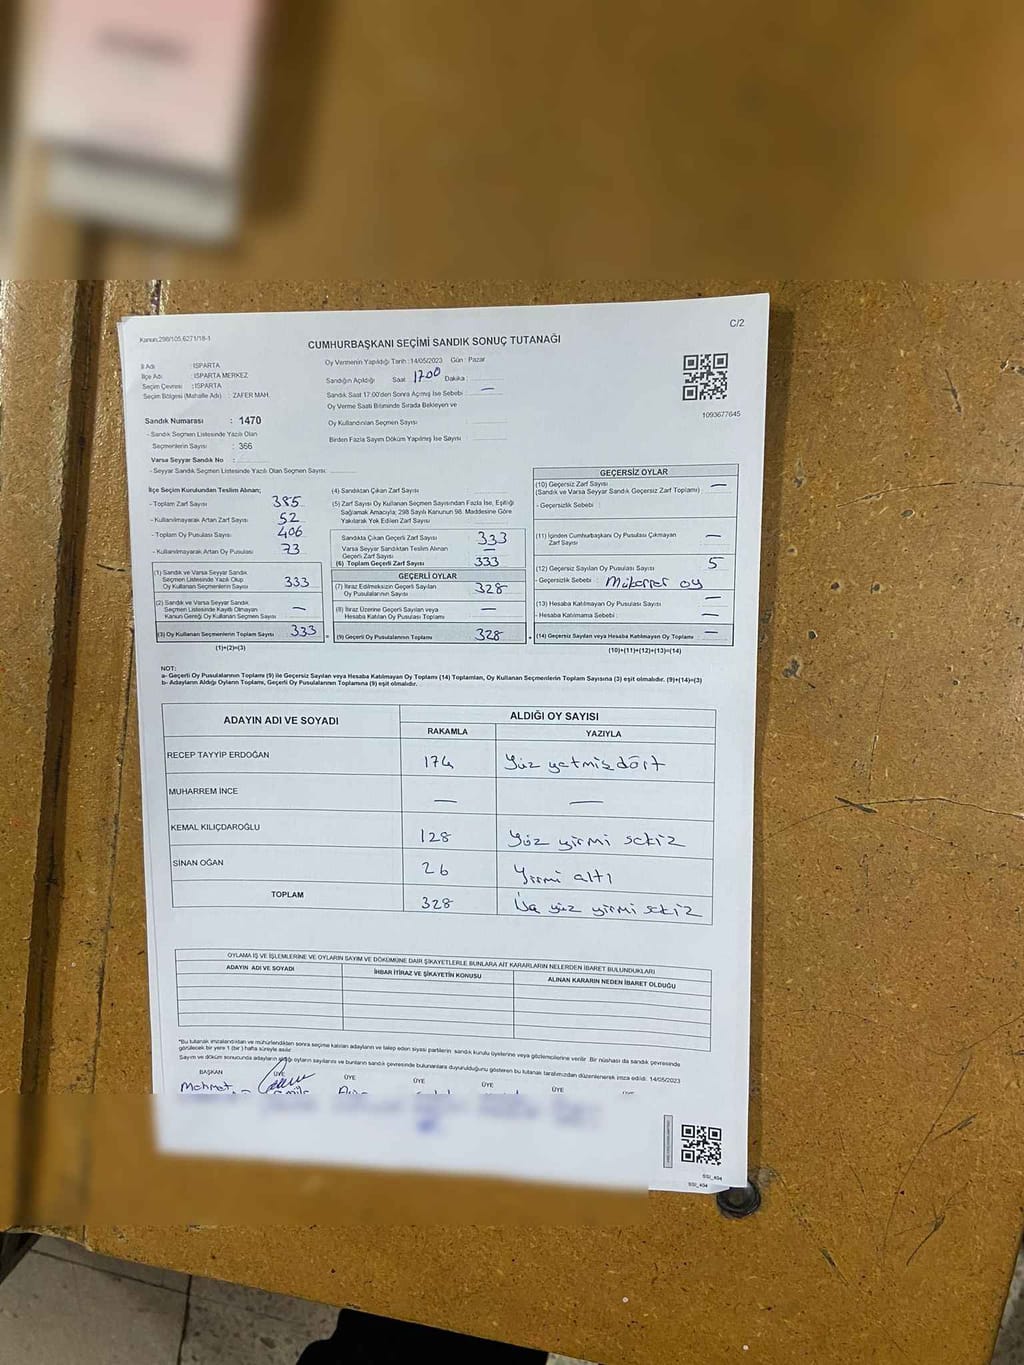 C/2
Kanun:298/105,6271/18-1
CUMHURBAŞKANI SEÇİMİ SANDIK SONUÇ TUTANAĞI
İl Adı : ISPARTA
İlçe Adı : ISPARTA MERKEZ
Seçim Çevresi : ISPARTA
Seçim Bölgesi (Mahalle Adı) : ZAFER MAH.
Oy Vermenin Yapıldığı Tarih :14/05/2023 Gün : Pazar
Sandığın Açıldığı Saat 17.00 Dakika :
Sandık Saat 17.00'den Sonra Açılmış İse Sebebi : —
Oy Verme Saati Bitiminde Sırada Bekleyen ve
Oy Kullandırılan Seçmen Sayısı :
Birden Fazla Sayım Döküm Yapılmış İse Sayısı :
1093677645
Sandık Numarası : 1470
- Sandık Seçmen Listesinde Yazılı Olan
Seçmenlerin Sayısı : 366
Varsa Seyyar Sandık No :
- Seyyar Sandık Seçmen Listesinde Yazılı Olan Seçmen Sayısı:
İlçe Seçim Kurulundan Teslim Alınan;
- Toplam Zarf Sayısı : 385
- Kullanılmayarak Artan Zarf Sayısı : 52
- Toplam Oy Pusulası Sayısı : 406
- Kullanılmayarak Artan Oy Pusulası : 73
(1) Sandık ve Varsa Seyyar Sandık
Seçmen Listesinde Yazılı Olup
Oy Kullanan Seçmenlerin Sayısı 333
(2) Sandık ve Varsa Seyyar Sandık
Seçmen Listesinde Kayıtlı Olmayan
Kanun Gereği Oy Kullanan Seçmen Sayısı —
(3) Oy Kullanan Seçmenlerin Toplam Sayısı 333
(1)+(2)=(3)
(4) Sandıktan Çıkan Zarf Sayısı
(5) Zarf Sayısı Oy Kullanan Seçmen Sayısından Fazla İse, Eşitliği
Sağlamak Amacıyla; 298 Sayılı Kanunun 98. Maddesine Göre
Yakılarak Yok Edilen Zarf Sayısı
Sandıkta Çıkan Geçerli Zarf Sayısı 333
Varsa Seyyar Sandıktan Teslim Alınan
Geçerli Zarf Sayısı —
(6) Toplam Geçerli Zarf Sayısı 333
GEÇERLİ OYLAR
(7) İtiraz Edilmeksizin Geçerli Sayılan
Oy Pusulalarının Sayısı 328
(8) İtiraz Üzerine Geçerli Sayılan veya
Hesaba Katılan Oy Pusulası Toplamı —
(9) Geçerli Oy Pusulalarının Toplamı 328
GEÇERSİZ OYLAR
(10) Geçersiz Zarf Sayısı —
(Sandık ve Varsa Seyyar Sandık Geçersiz Zarf Toplamı)
- Geçersizlik Sebebi :
(11) İçinden Cumhurbaşkanı Oy Pusulası Çıkmayan
Zarf Sayısı —
(12) Geçersiz Sayılan Oy Pusulası Sayısı 5
- Geçersizlik Sebebi : Mükerrer oy
(13) Hesaba Katılmayan Oy Pusulası Sayısı —
- Hesaba Katılmama Sebebi : —
(14) Geçersiz Sayılan veya Hesaba Katılmayan Oy Toplamı —
(10)+(11)+(12)+(13)=(14)
NOT:
a- Geçerli Oy Pusulalarının Toplamı (9) ile Geçersiz Sayılan veya Hesaba Katılmayan Oy Toplamı (14) Toplamları, Oy Kullanan Seçmenlerin Toplam Sayısına (3) eşit olmalıdır. (9)+(14)=(3)
b- Adayların Aldığı Oyların Toplamı, Geçerli Oy Pusulalarının Toplamına (9) eşit olmalıdır.
ADAYIN ADI VE SOYADI ALDIĞI OY SAYISI
RAKAMLA YAZIYLA
RECEP TAYYİP ERDOĞAN 174 Yüz yetmiş dört
MUHARREM İNCE — —
KEMAL KILIÇDAROĞLU 128 Yüz yirmi sekiz
SİNAN OĞAN 26 Yirmi altı
TOPLAM 328 Üç yüz yirmi sekiz
OYLAMA İŞ VE İŞLEMLERİNE VE OYLARIN SAYIM VE DÖKÜMÜNE DAİR ŞİKAYETLERLE BUNLARA AİT KARARLARIN NELERDEN İBARET BULUNDUKLARI
ADAYIN ADI VE SOYADI İHBAR İTİRAZ VE ŞİKAYETİN KONUSU ALINAN KARARIN NEDEN İBARET OLDUĞU
*Bu tutanak imzalandıktan ve mühürlendikten sonra seçime katılan adayların ve talep eden siyasi partilerin sandık kurulu üyelerine veya gözlemcilerine verilir. Bir nüshası da sandık çevresinde
görülecek bir yere 1 (bir) hafta süreyle asılır.
Sayım ve döküm sonucunda adayların aldığı oyların sayılarını ve bunların sandık çevresinde bulunanlara duyurulduğunu gösteren bu tutanak tarafımızdan düzenlenerek imza edildi. 14/05/2023
BAŞKAN ÜYE ÜYE ÜYE ÜYE ÜYE ÜYE
Mehmet
SSI_404
SSI_404